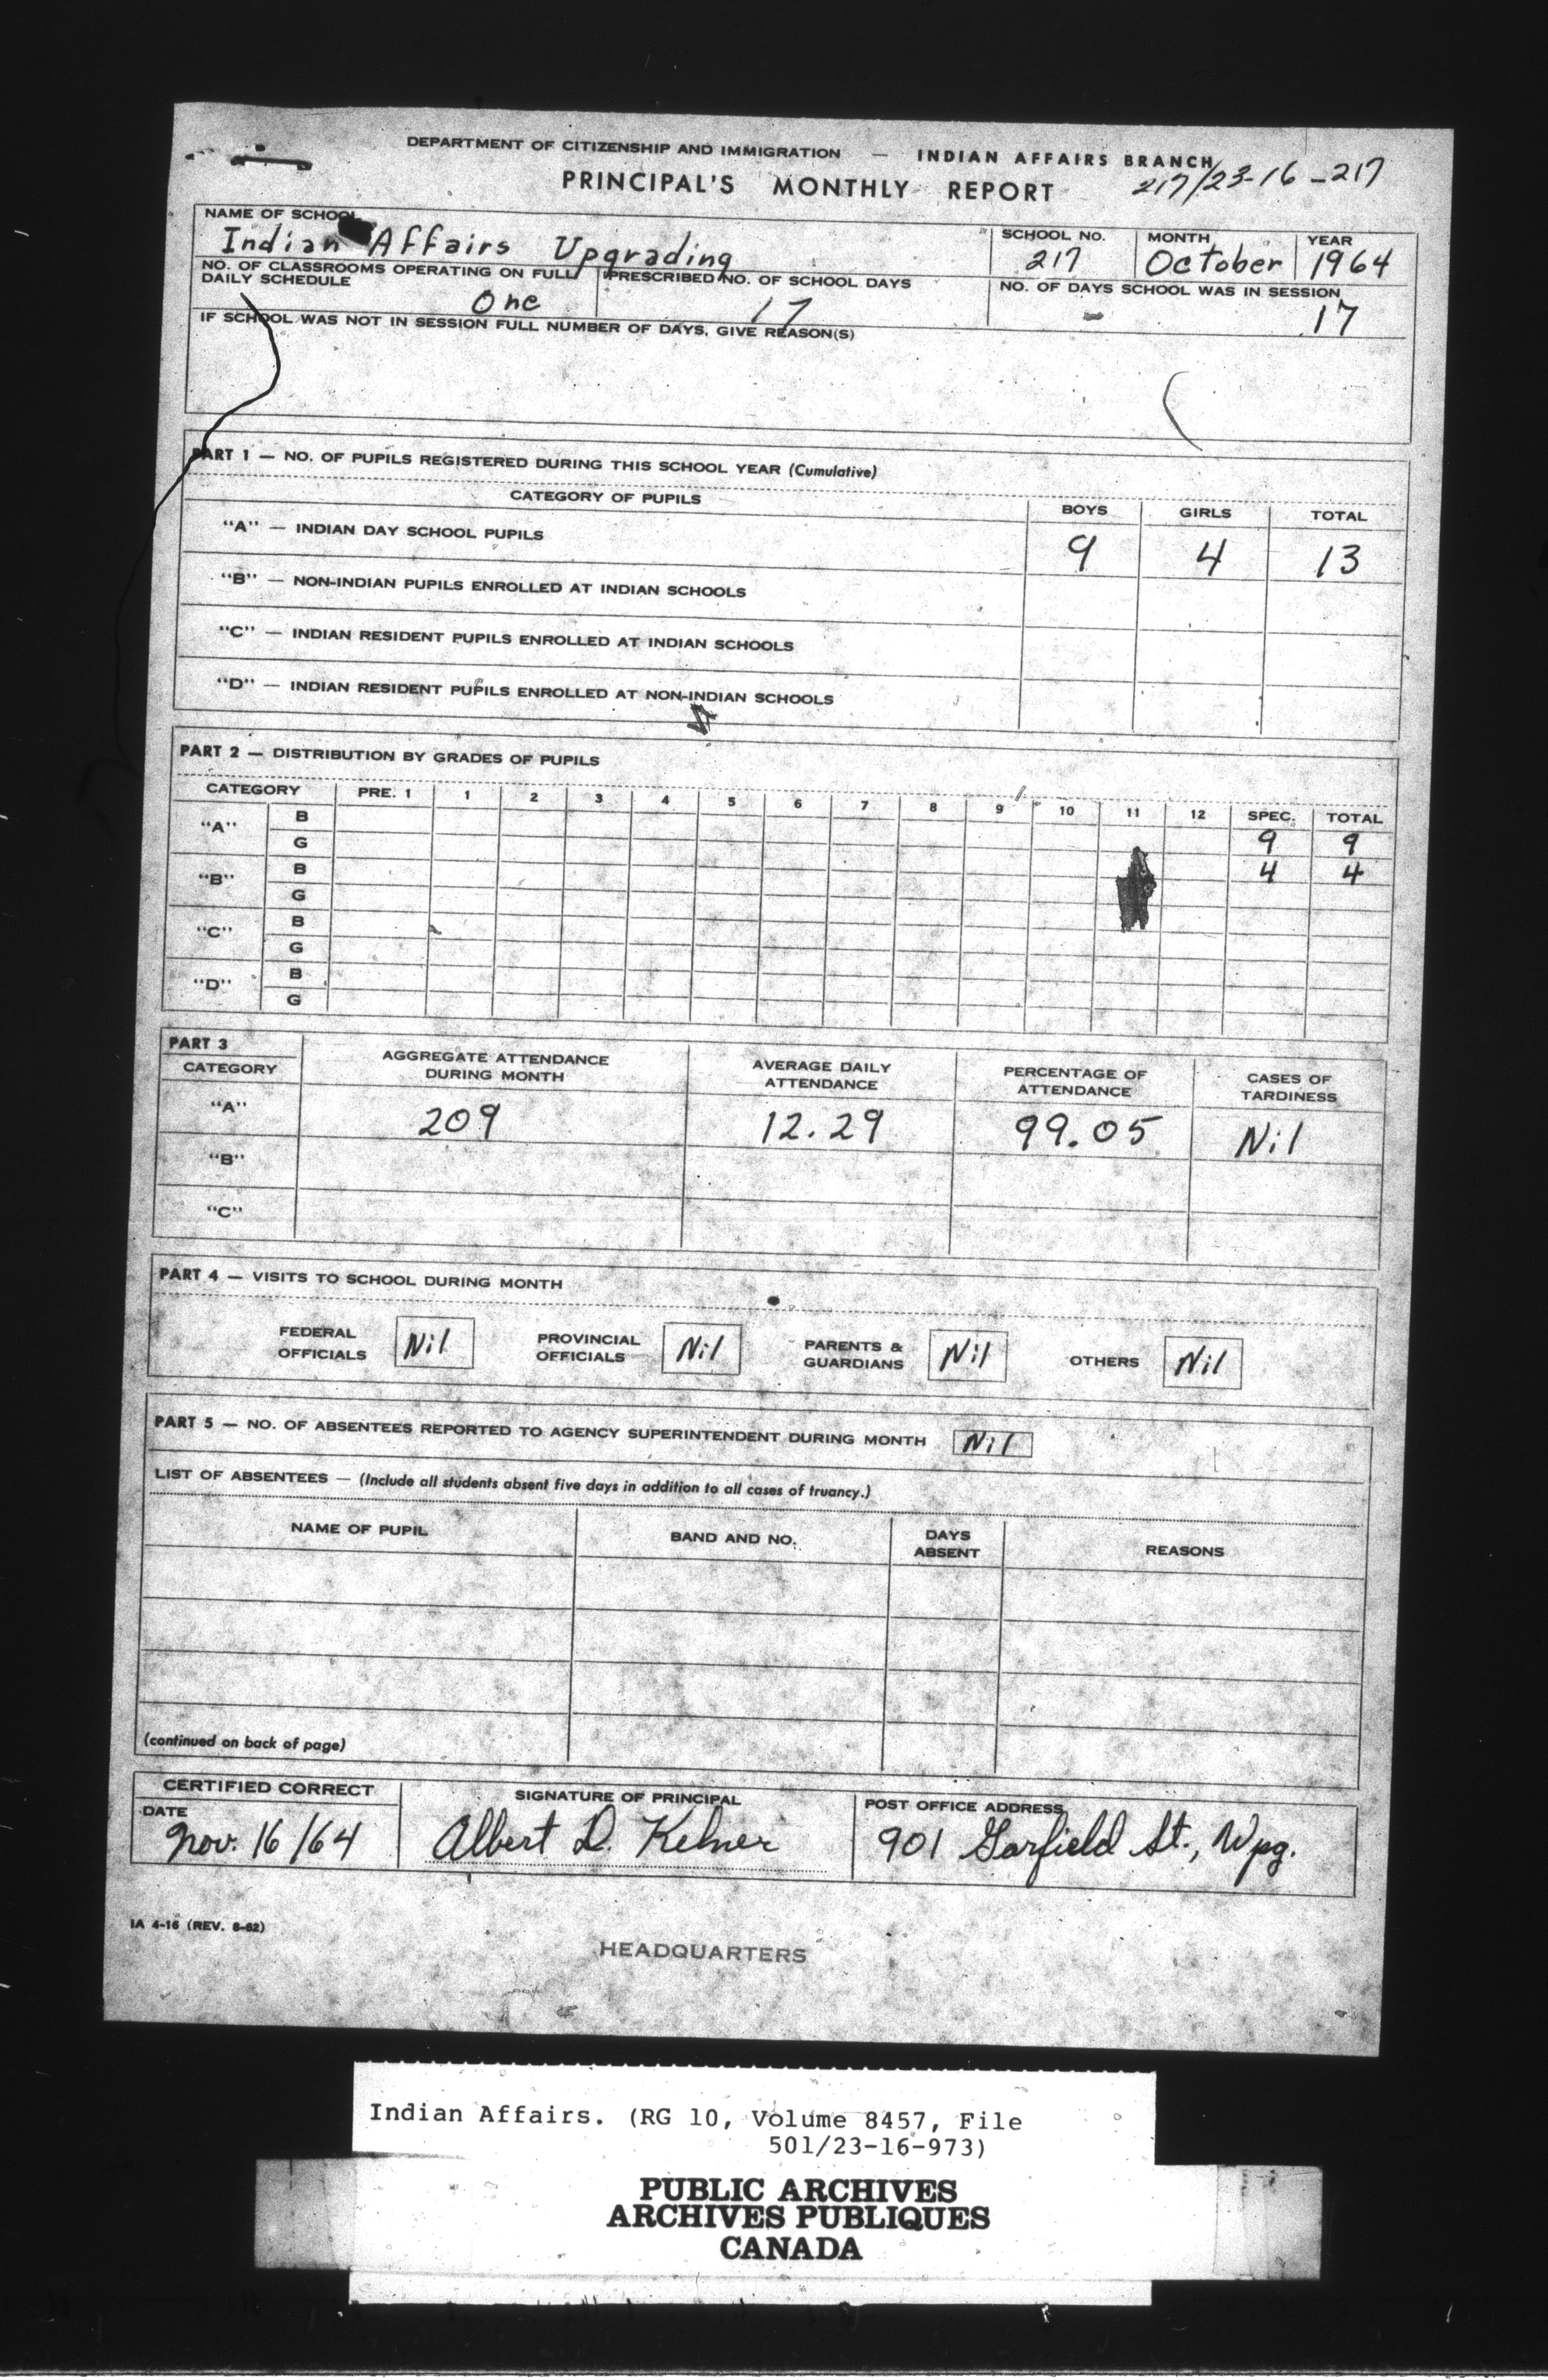 DEPARTMENT OF CITIZENSHIP AND IMMIGRATION — INDIAN AFFAIRS BRANCH
PRINCIPAL'S MONTHLY REPORT 217/23-16-217
NAME OF SCHOOL SCHOOL NO. MONTH YEAR
Indian Affairs Upgrading 217 October 1964
NO. OF CLASSROOMS OPERATING ON FULL DAILY SCHEDULE One PRESCRIBED NO. OF SCHOOL DAYS 17 NO. OF DAYS SCHOOL WAS IN SESSION 17
IF SCHOOL WAS NOT IN SESSION FULL NUMBER OF DAYS, GIVE REASON(S)
PART 1 — NO. OF PUPILS REGISTERED DURING THIS SCHOOL YEAR (Cumulative)
CATEGORY OF PUPILS BOYS GIRLS TOTAL
"A" — INDIAN DAY SCHOOL PUPILS 9 4 13
"B" — NON-INDIAN PUPILS ENROLLED AT INDIAN SCHOOLS
"C" — INDIAN RESIDENT PUPILS ENROLLED AT INDIAN SCHOOLS
"D" — INDIAN RESIDENT PUPILS ENROLLED AT NON-INDIAN SCHOOLS
PART 2 — DISTRIBUTION BY GRADES OF PUPILS
CATEGORY PRE. 1 1 2 3 4 5 6 7 8 9 10 11 12 SPEC. TOTAL
"A" B 9 9
G 4 4
"B" B
G
"C" B
G
"D" B
G
PART 3
CATEGORY AGGREGATE ATTENDANCE DURING MONTH AVERAGE DAILY ATTENDANCE PERCENTAGE OF ATTENDANCE CASES OF TARDINESS
"A" 209 12.29 99.05 Nil
"B"
"C"
PART 4 — VISITS TO SCHOOL DURING MONTH
FEDERAL OFFICIALS Nil PROVINCIAL OFFICIALS Nil PARENTS & GUARDIANS Nil OTHERS Nil
PART 5 — NO. OF ABSENTEES REPORTED TO AGENCY SUPERINTENDENT DURING MONTH Nil
LIST OF ABSENTEES — (Include all students absent five days in addition to all cases of truancy.)
NAME OF PUPIL BAND AND NO. DAYS ABSENT REASONS
(continued on back of page)
CERTIFIED CORRECT SIGNATURE OF PRINCIPAL POST OFFICE ADDRESS
DATE
Nov. 16/64 Albert D. Kelner 901 Garfield St., Wpg.
IA 4-16 (REV. 8-62)
HEADQUARTERS
Indian Affairs. (RG 10, Volume 8457, File
501/23-16-973)
PUBLIC ARCHIVES
ARCHIVES PUBLIQUES
CANADA